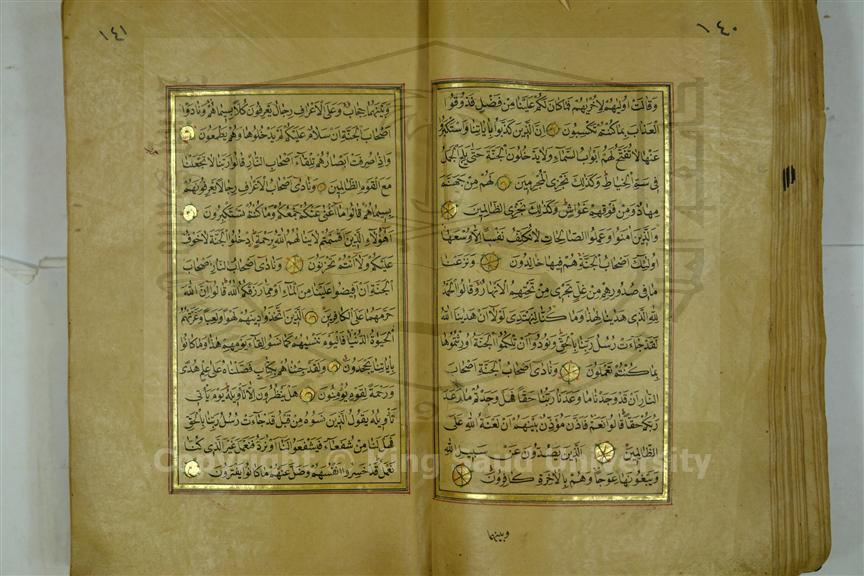 ١٤٠
وقالت اوليهم لاخريهم فما كان لكم علينا من فضل فذوقوا
العذاب بما كنتم تكسبون ان الذين كذبوا باياتنا واستكبروا
عنها لا تفتح لهم ابواب السماء ولا يدخلون الجنة حتى يلج الجمل
في سم الخياط وكذلك نجزي المجرمين لهم من جهنم
مهاد ومن فوقهم غواش وكذلك نجزي الظالمين
والذين امنوا وعملوا الصالحات لا نكلف نفسا الا وسعها
اولئك اصحاب الجنة هم فيها خالدون ونزعنا
ما في صدورهم من غل تجري من تحتهم الانهار وقالوا الحمد
لله الذي هدينا لهذا وما كنا لنهتدي لولا ان هدينا الله
لقد جاءت رسل ربنا بالحق ونودوا ان تلكم الجنة اورثتموها
بما كنتم تعملون ونادى اصحاب الجنة اصحاب
النار ان قد وجدنا ما وعدنا ربنا حقا فهل وجدتم ما وعد
ربكم حقا قالوا نعم فاذن مؤذن بينهم ان لعنة الله على
الظالمين الذين يصدون عن سبيل الله
ويبغونها عوجا وهم بالاخرة كافرون
وبينهما
١٤١
وبينهما حجاب وعلى الاعراف رجال يعرفون كلا بسيماهم ونادوا
اصحاب الجنة ان سلام عليكم لم يدخلوها وهم يطمعون
واذا صرفت ابصارهم تلقاء اصحاب النار قالوا ربنا لا تجعلنا
مع القوم الظالمين ونادى اصحاب الاعراف رجالا يعرفونهم
بسيماهم قالوا ما اغنى عنكم جمعكم وما كنتم تستكبرون
اهؤلاء الذين اقسمتم لا ينالهم الله برحمة ادخلوا الجنة لا خوف
عليكم ولا انتم تحزنون ونادى اصحاب النار اصحاب
الجنة ان افيضوا علينا من الماء او مما رزقكم الله قالوا ان الله
حرمهما على الكافرين الذين اتخذوا دينهم لهوا ولعبا وغرتهم
الحيوة الدنيا فاليوم ننسيهم كما نسوا لقاء يومهم هذا وما كانوا
باياتنا يجحدون ولقد جئناهم بكتاب فصلناه على علم هدى
ورحمة لقوم يؤمنون هل ينظرون الا تأويله يوم يأتي
تأويله يقول الذين نسوه من قبل قد جاءت رسل ربنا بالحق
فهل لنا من شفعاء فيشفعوا لنا او نرد فنعمل غير الذي كنا
نعمل قد خسروا انفسهم وضل عنهم ما كانوا يفترون
Copyright © King Saud University